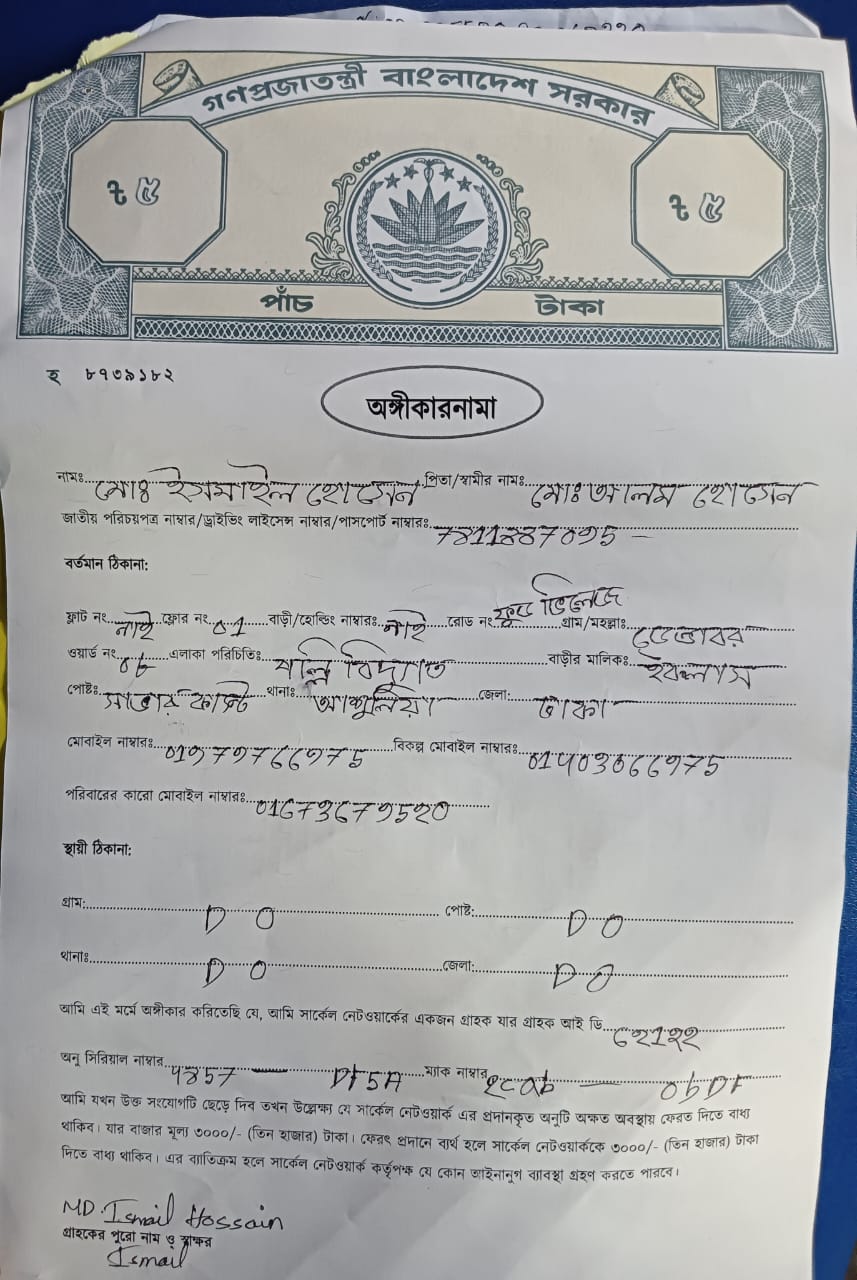 গণপ্রজাতন্ত্রী বাংলাদেশ সরকার
৳ ৫
৳ ৫
পাঁচ টাকা
হ ৮৭৩৯১৮২
অঙ্গীকারনামা
নামঃ মোঃ ইসমাইল হোসেন পিতা/স্বামীর নামঃ মোঃ আলম হোসেন
জাতীয় পরিচয়পত্র নাম্বার/ড্রাইভিং লাইসেন্স নাম্বার/পাসপোর্ট নাম্বারঃ
বর্তমান ঠিকানা:
ফ্লাট নং নাই ফ্লোর নং 01 বাড়ী/হোল্ডিং নাম্বারঃ নাই রোড নং ভিলেজ গ্রাম/মহল্লাঃ
ওয়ার্ড নং এলাকা পরিচিতিঃ পল্লি বিদ্যুাত বাড়ীর মালিকঃ
পোষ্টঃ সাভার ক্যান্ট থানাঃ আশুলিয়া জেলা: ঢাকা
মোবাইল নাম্বারঃ বিকল্প মোবাইল নাম্বারঃ
পরিবারের কারো মোবাইল নাম্বারঃ
স্থায়ী ঠিকানা:
গ্রাম: D O পোষ্ট: D O
থানাঃ D O জেলা: D O
আমি এই মর্মে অঙ্গীকার করিতেছি যে, আমি সার্কেল নেটওয়ার্কের একজন গ্রাহক যার গ্রাহক আই ডি
অনু সিরিয়াল নাম্বার DF5A ম্যাক নাম্বার
আমি যখন উক্ত সংযোগটি ছেড়ে দিব তখন উল্লেক্ষ্য যে সার্কেল নেটওয়ার্ক এর প্রদানকৃত অনুটি অক্ষত অবস্থায় ফেরত দিতে বাধ্য
থাকিব। যার বাজার মূল্য ৩০০০/- (তিন হাজার) টাকা। ফেরৎ প্রদানে ব্যর্থ হলে সার্কেল নেটওয়ার্ককে ৩০০০/- (তিন হাজার) টাকা
দিতে বাধ্য থাকিব। এর ব্যাতিক্রম হলে সার্কেল নেটওয়ার্ক কর্তৃপক্ষ যে কোন আইনানুগ ব্যাবস্থা গ্রহণ করতে পারবে।
MD. Ismail Hossain
গ্রাহকের পুরো নাম ও স্বাক্ষর
Ismail